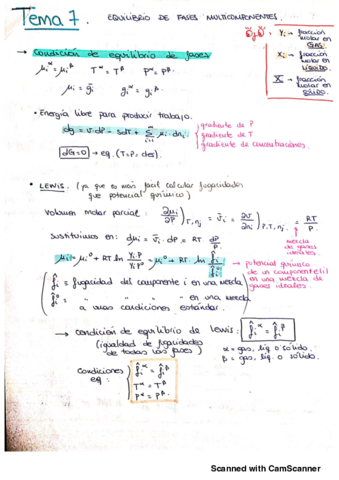 Tema 7. EQUILIBRIO DE FASES MULTICOMPONENTES.
Yi → fracción molar en GAS.
Xi → fracción molar en LÍQUIDO.
X → fracción molar en SÓLIDO.
→ Condición de equilibrio de fases
μi^α = μi^β   T^α = T^β   P^α = P^β
μi = gi   gi^α = gi^β
• Energía libre para producir trabajo.
dg = v·dP - sdT + Σ μi·dni
gradiente de P
gradiente de T
gradiente de concentraciones.
dG=0 → eq. (T=P= ctes).
• LEWIS. (ya que es más fácil calcular fugacidades que potencial químico)
Volumen molar parcial: ∂μi/∂P)T,nj = v̄i = ∂V/∂ni)P,T,nj = RT/P
mezcla de gases ideales.
Sustituimos en: dμi = v̄i·dP = RT dP/P
μi = μi° + RT ln Yi·P/Yi·P° = μi° + RT·ln f̂i/f̂i°
→ potencial químico de un componente (i) en una mezcla de gases ideales
f̂i = fugacidad del componente i en una mezcla
f̂i° = " " " " en una mezcla a unas condiciones estándar.
→ condición de equilibrio de Lewis: f̂i^α = f̂i^β
(igualdad de fugacidades de todas las fases)
α = gas, líq. o sólido.
β = gas, líq. o sólido.
Condiciones eq:
f̂i^α = f̂i^β
T^α = T^β
P^α = P^β.
Scanned with CamScanner